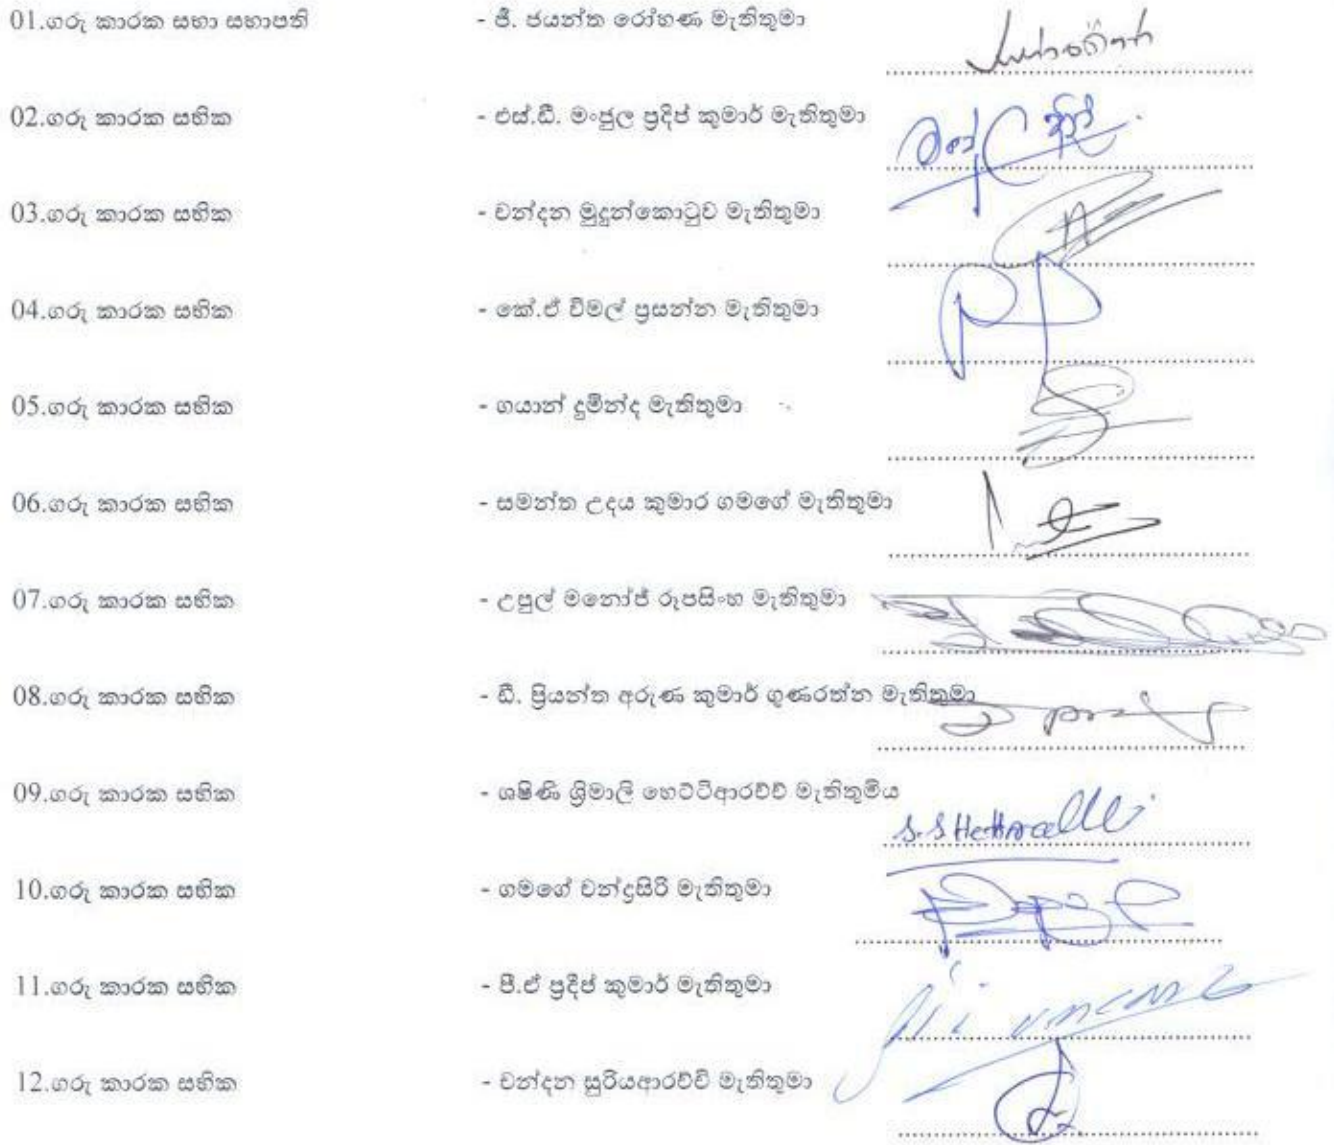 01.ගරු කාරක සභා සභාපති - ජී. ජයන්ත රෝහණ මැතිතුමා
02.ගරු කාරක සභික - එස්.ඩී. මංජුල ප්‍රදිප් කුමාර් මැතිතුමා
03.ගරු කාරක සභික - චන්දන මුදුන්කොටුව මැතිතුමා
04.ගරු කාරක සභික - කේ.ඒ විමල් ප්‍රසන්න මැතිතුමා
05.ගරු කාරක සභික - ගයාන් දුමින්ද මැතිතුමා
06.ගරු කාරක සභික - සමන්ත උදය කුමාර ගමගේ මැතිතුමා
07.ගරු කාරක සභික - උපුල් මනෝජ් රූපසිංහ මැතිතුමා
08.ගරු කාරක සභික - ඩී. ප්‍රියන්ත අරුණ කුමාර් ගුණරත්න මැතිතුමා
09.ගරු කාරක සභික - ශෂිණි ශ්‍රිමාලි හෙට්ටිආරච්චි මැතිතුමිය
10.ගරු කාරක සභික - ගමගේ චන්ද්‍රසිරි මැතිතුමා
11.ගරු කාරක සභික - පී.ඒ ප්‍රදීප් කුමාර් මැතිතුමා
12.ගරු කාරක සභික - චන්දන සුරියආරච්චි මැතිතුමා